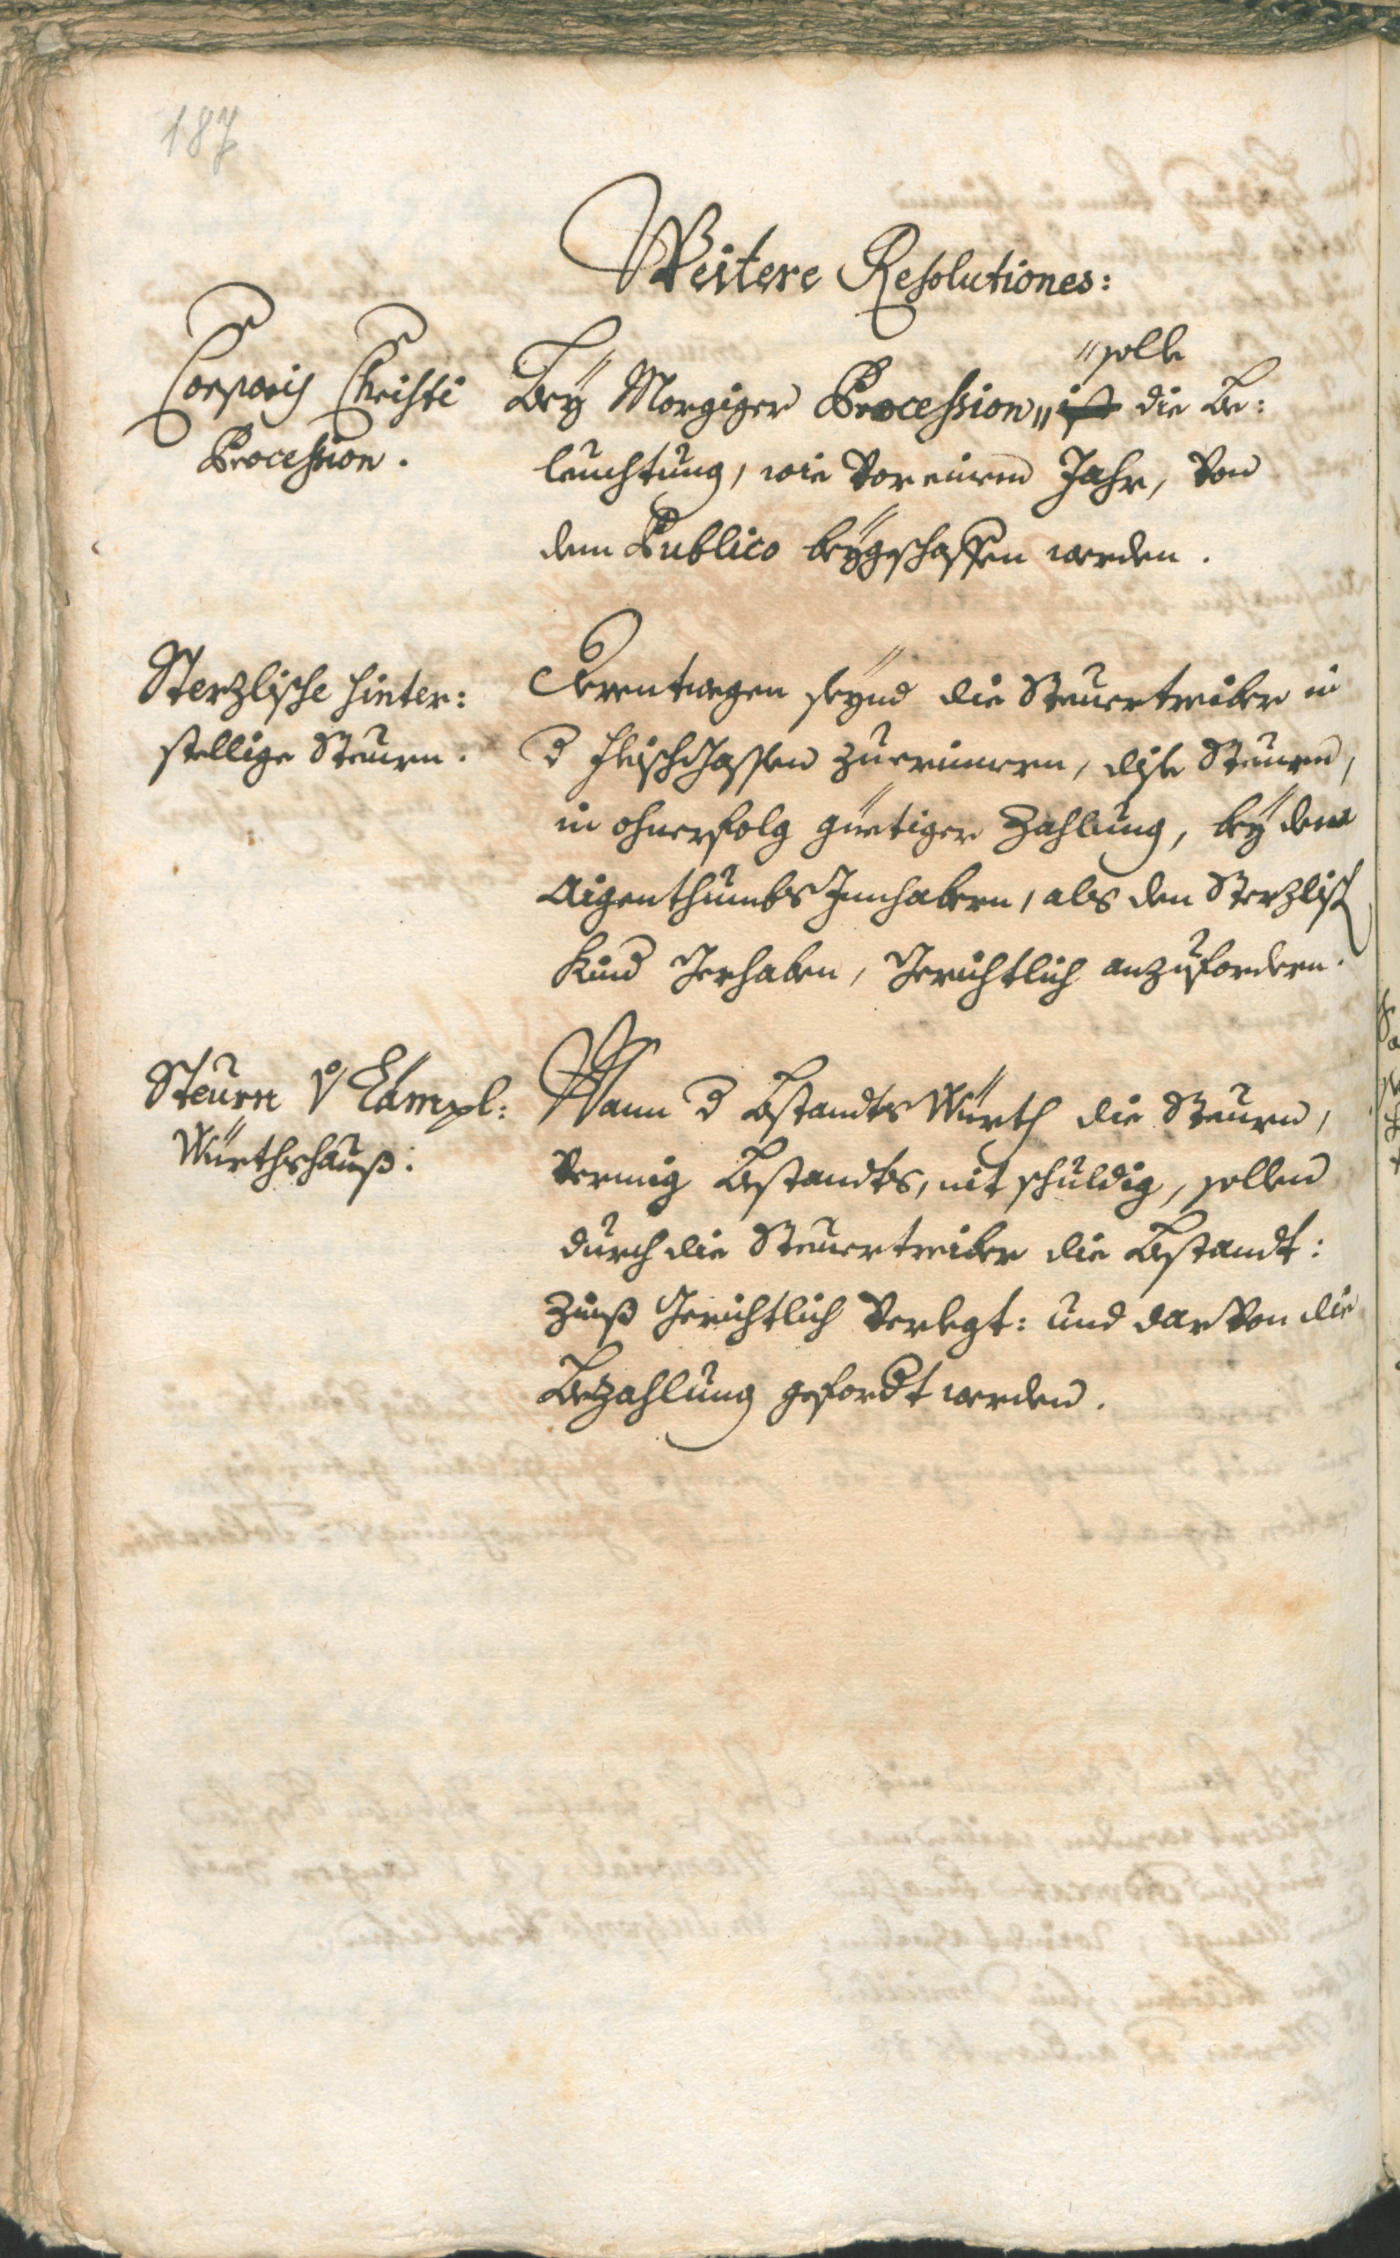 187
Weitere Resolutiones:
Corporis Christi
Procession.
Bey Morgiger Procession "ist "solle die Be:
leuchtung, wie vor einem Jahr, von
dem Publico beygeschaffen werden.
Sterzlische hinter:
stellige Steuren.
Derentwegen seynd die Steuertreiber in
d Fleischgassen zuerinnern, dise Steuren,
in ohnerfolg güetiger Zahlung, bey denen
Aigenthumbs Innhabern, als den Sterzlisch
Kind Gerhaben, Gerichtlich anzufordern.
Steurn v Lämpl:
Würthshauß.
Wann d Bstandts Würth die Steuren,
vermig Bstandts, nit schuldig, sollen
durch die Steuertreiber die Bstandt:
Zinß Gerichtlich verlegt: und darvon die
Bezahlung gefordt werden.